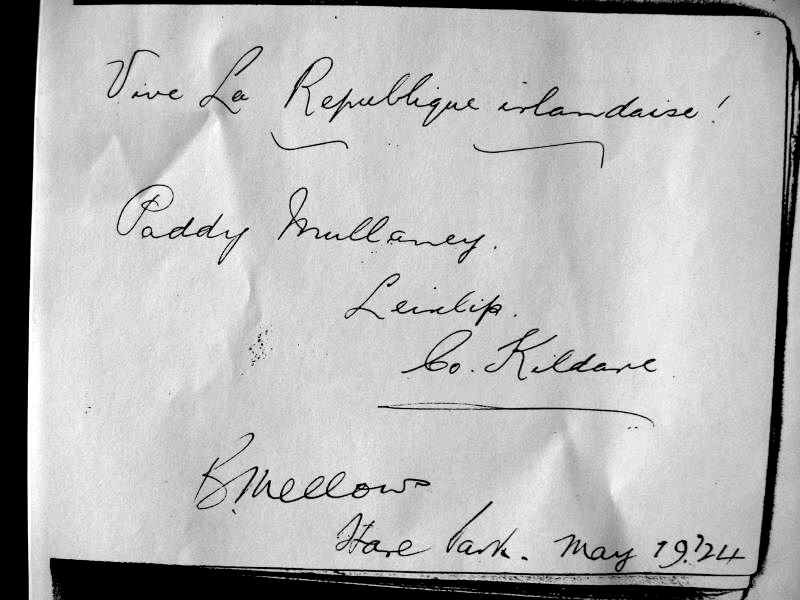 Vive La Republique irlandaise!
Paddy Mullaney.
Leixlip.
Co. Kildare
B. Mellows
Hare Park. May 19. '24